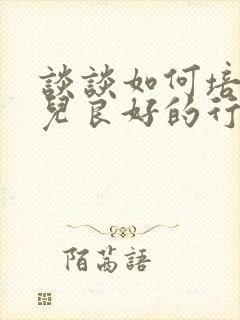 談談如何培
兒良好的行
陌茗語